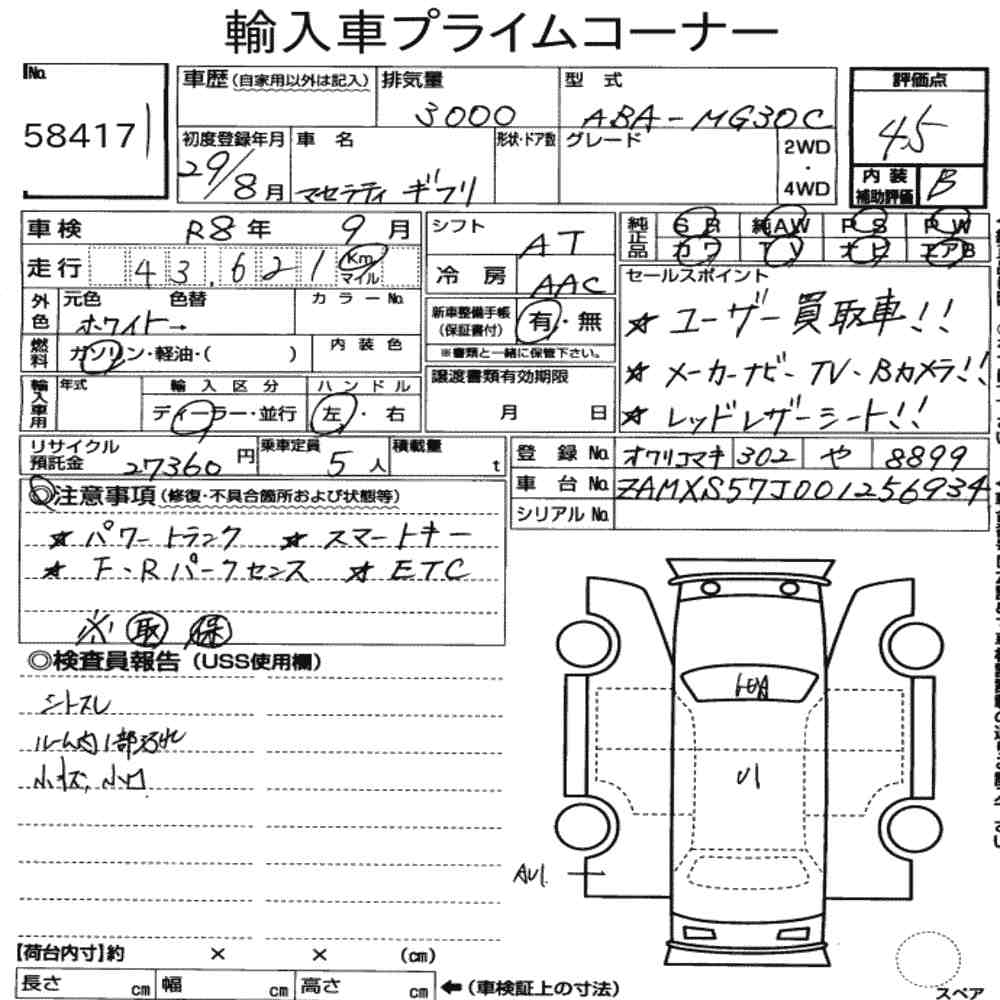 輸入車プライムコーナー
No. 58417
車歴(自家用以外は記入)
排気量 3000
型 式 ABA-MG30C
評価点 4.5
初度登録年月 29/8月
車 名 マセラティ ギブリ
形状・ドア数
グレード
2WD
・
4WD
内 装
補助評価 B
車検 R8年 9月
走行 43,621 Km
マイル
外色
元色 色替
ホワイト→
カラーNo.
燃料
ガソリン・軽油・( )
内 装 色
輸入車用
年式
輸 入 区 分
ディーラー・並行
ハ ン ド ル
左・右
シフト AT
冷 房 AAC
新車整備手帳
(保証書付)
有・無
※書類と一緒に保管下さい。
譲渡書類有効期限
月 日
純正品
SR 純AW PS PW
カワ TV ナビ エアB
セールスポイント
☆ ユーザー買取車!!
☆ メーカーナビ・TV・Bカメラ!!
☆ レッドレザーシート!!
リサイクル
預託金 27360円
乗車定員 5人
積載量 t
登 録 No. オワリコマキ 302 や 8899
車 台 No. ZAMXS57J001256934
シリアル No.
◎注意事項(修復・不具合箇所および状態等)
☆ パワートランク ☆ スマートキー
☆ F・Rパークセンス ☆ ETC
※ 取 保
◎検査員報告(USS使用欄)
シートスレ
ルーム内1部汚れ
小キズ、小凹
AU1.
U1
【荷台内寸】約 × × (cm)
長さ cm 幅 cm 高さ cm
←(車検証上の寸法)
スペア